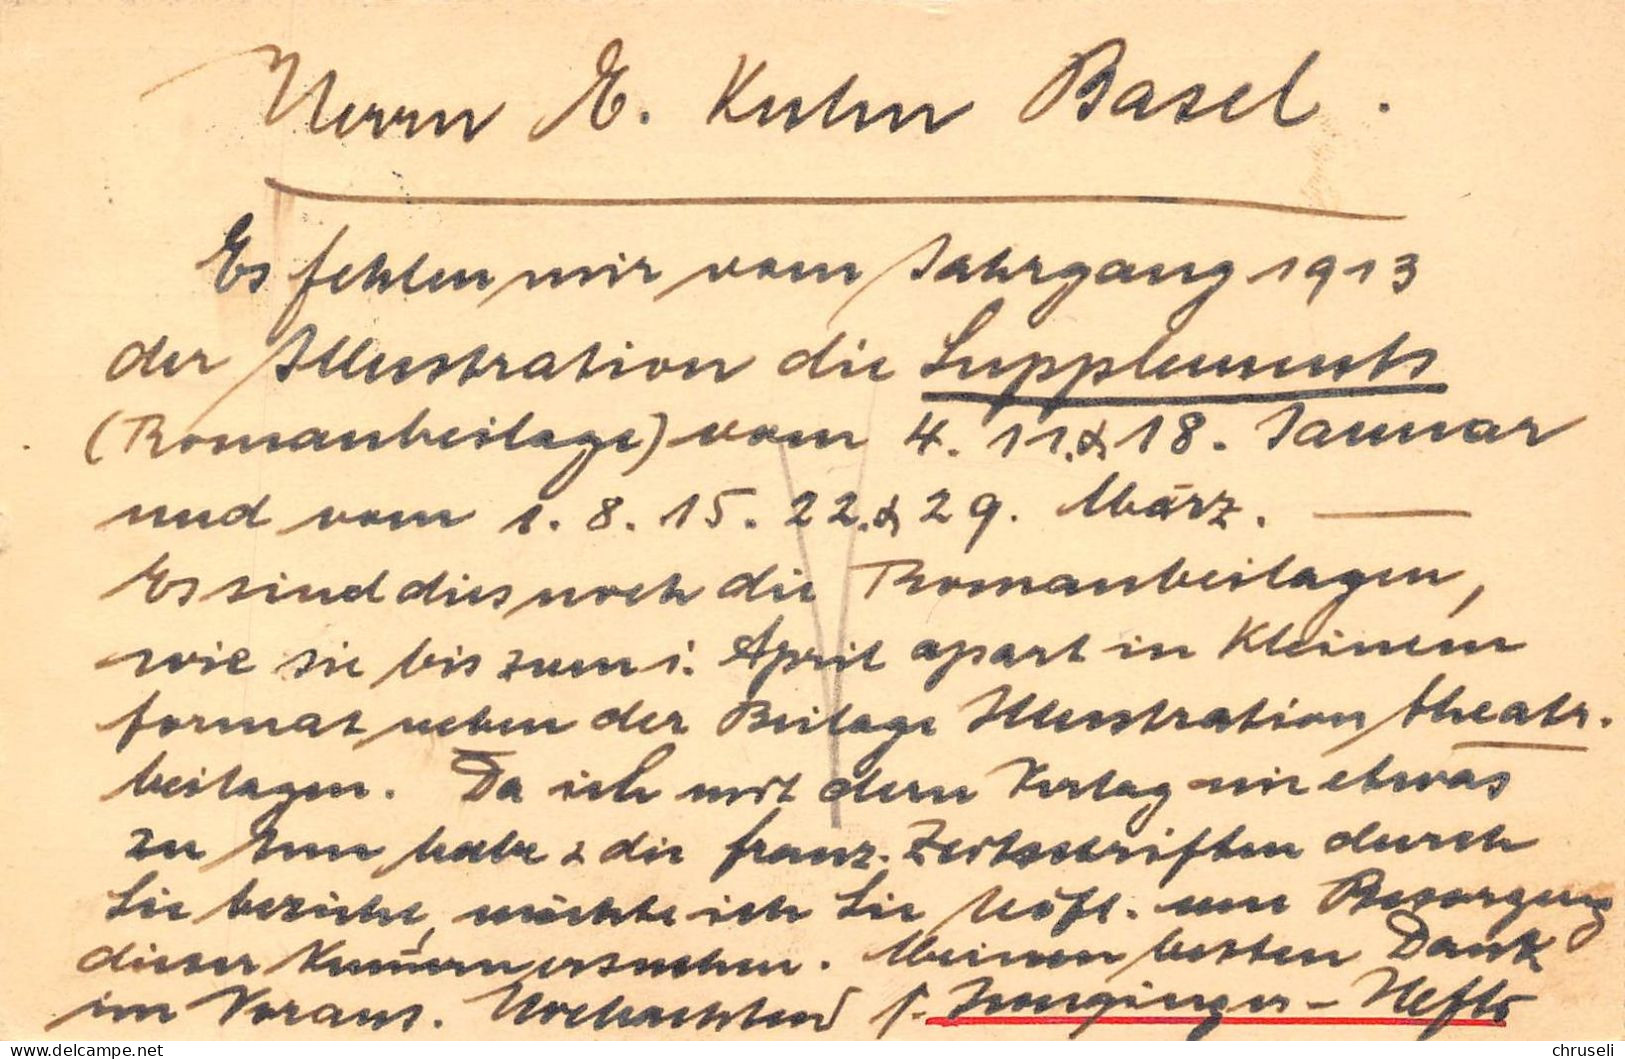 Herrn E. Kuhn Basel.
Es fehlen mir vom Jahrgang 1913
der Illustration die Supplements
(Romanbeilage) vom 4. 11. & 18. Januar
und vom 1. 8. 15. 22. & 29. März. —
Es sind dies noch die Romanbeilagen,
wie sie bis zum 1. April apart in Kleinem
format neben der Beilage Illustration theatr.
beilagen. Da ich mit dem Verlag nie etwas
zu tun habe & die franz. Zeitschriften durch
Sie beziehe, möchte ich Sie höfl. um Besorgung
dieser Numern ersuchen. Meinen besten Dank
im Voraus. Hochachtend
chruseli